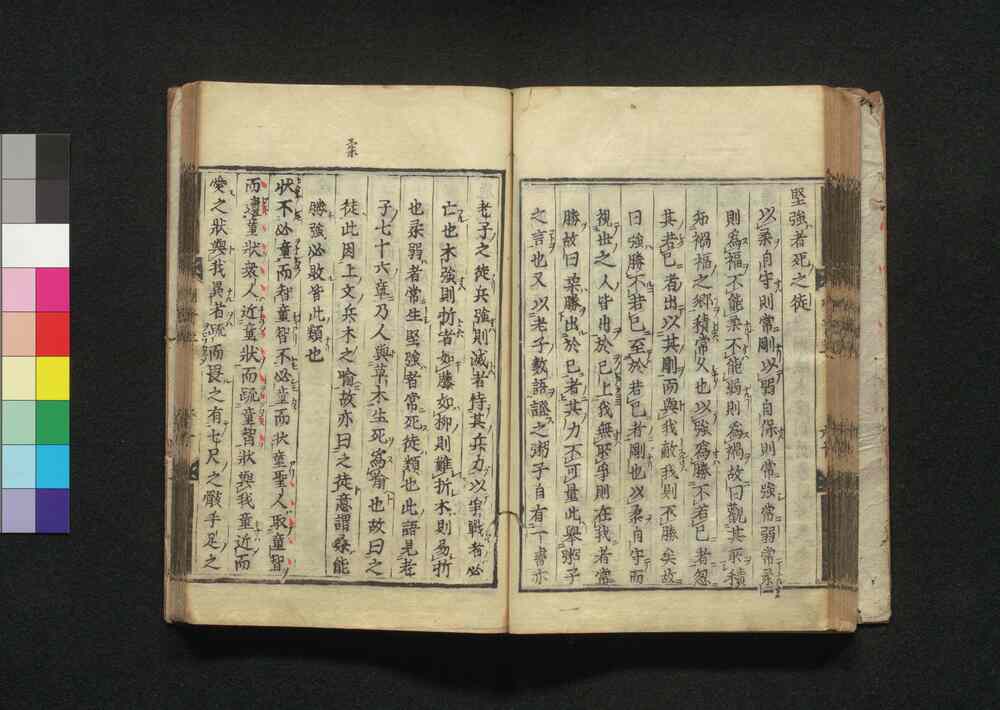 堅強者死之徒
以柔自守則常剛以弱自保則常強常弱常柔
則為福不能柔不能弱則為禍故曰觀其所積
知禍福之鄉積常久也以強為勝不若己者忽
其若己者出以其剛而與我敵我則不勝矣故
曰強勝不若己至於若己者剛也以柔自守而
視世之人皆出於己上我無所爭則在我若常
勝故曰柔勝出於己者其力不可量此舉粥子
之言也又以老子數語證之粥子自有一書亦
老子之徒兵強則滅者恃其兵力以爭戰者必
亡也木強則折者如藤如柳則難折木則易折
也柔弱者常生堅強者常死徒類也此語見老
子七十六章乃人與草木生死為喻也故曰之
徒此因上文兵木之喻故亦曰之徒意謂柔能
勝強必敗皆此類也
柔
狀不必童而智童智不必童而狀童聖人取童智
而遺童狀衆人近童狀而疏童智狀與我童近而
愛之狀與我異者疏而畏之有七尺之骸手足之